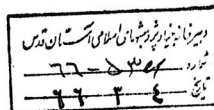 دبیرخانه بنیاد پژوهشهای اسلامی آستان قدس
شماره ۵۳۹۲-۶۶
تاریخ ۶۶ ۳ ۴